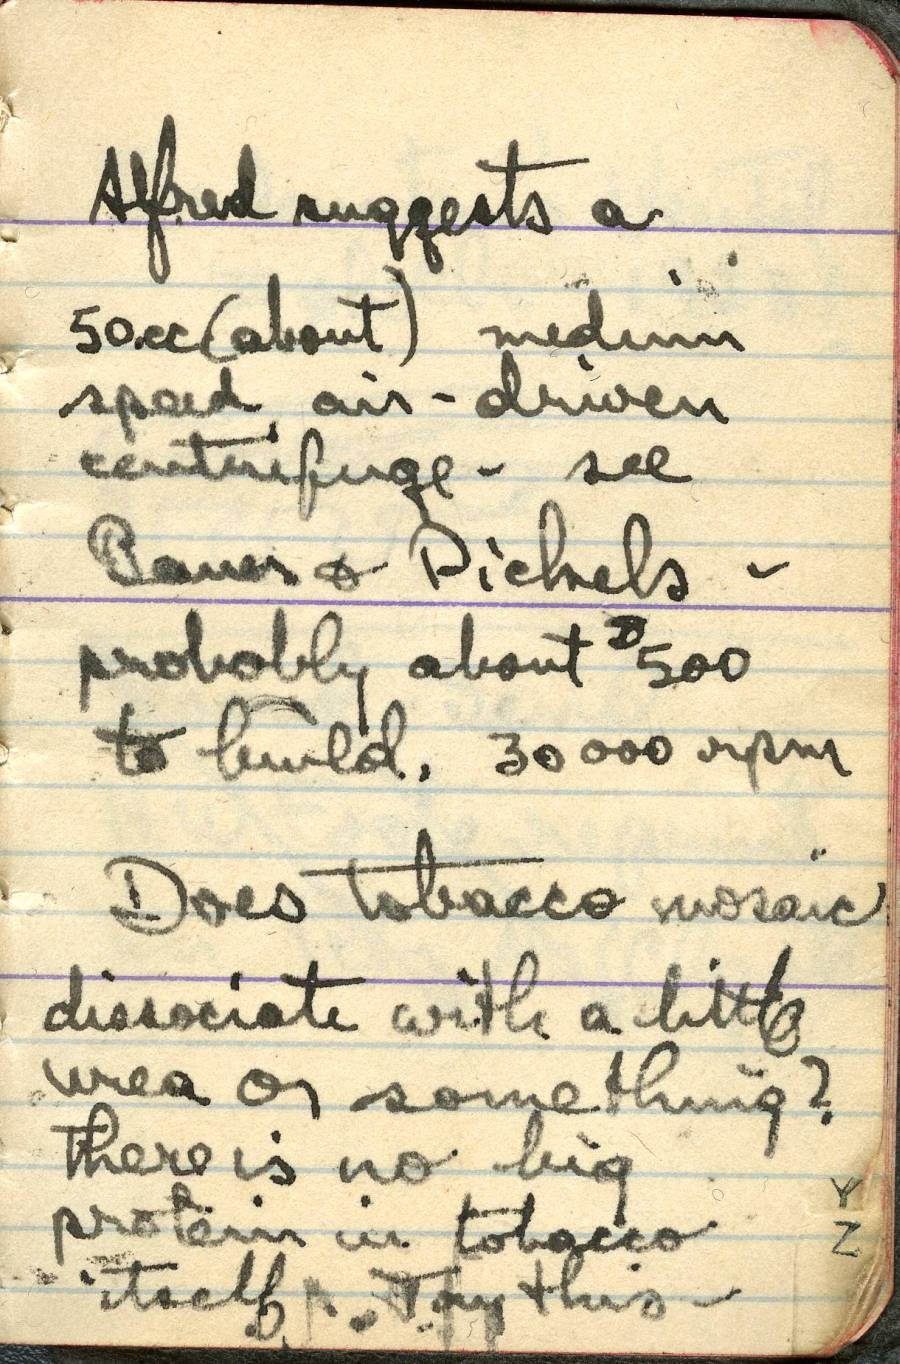 Alfred suggests a
50.cc (about) medium
speed air-driven
centrifuge - see
Bauer & Pickels -
probably about $500
to build. 30000 rpm
Does tobacco mosaic
dissociate with a little
urea or something?
There is no big
protein in tobacco
itself. Try this -
Y
Z